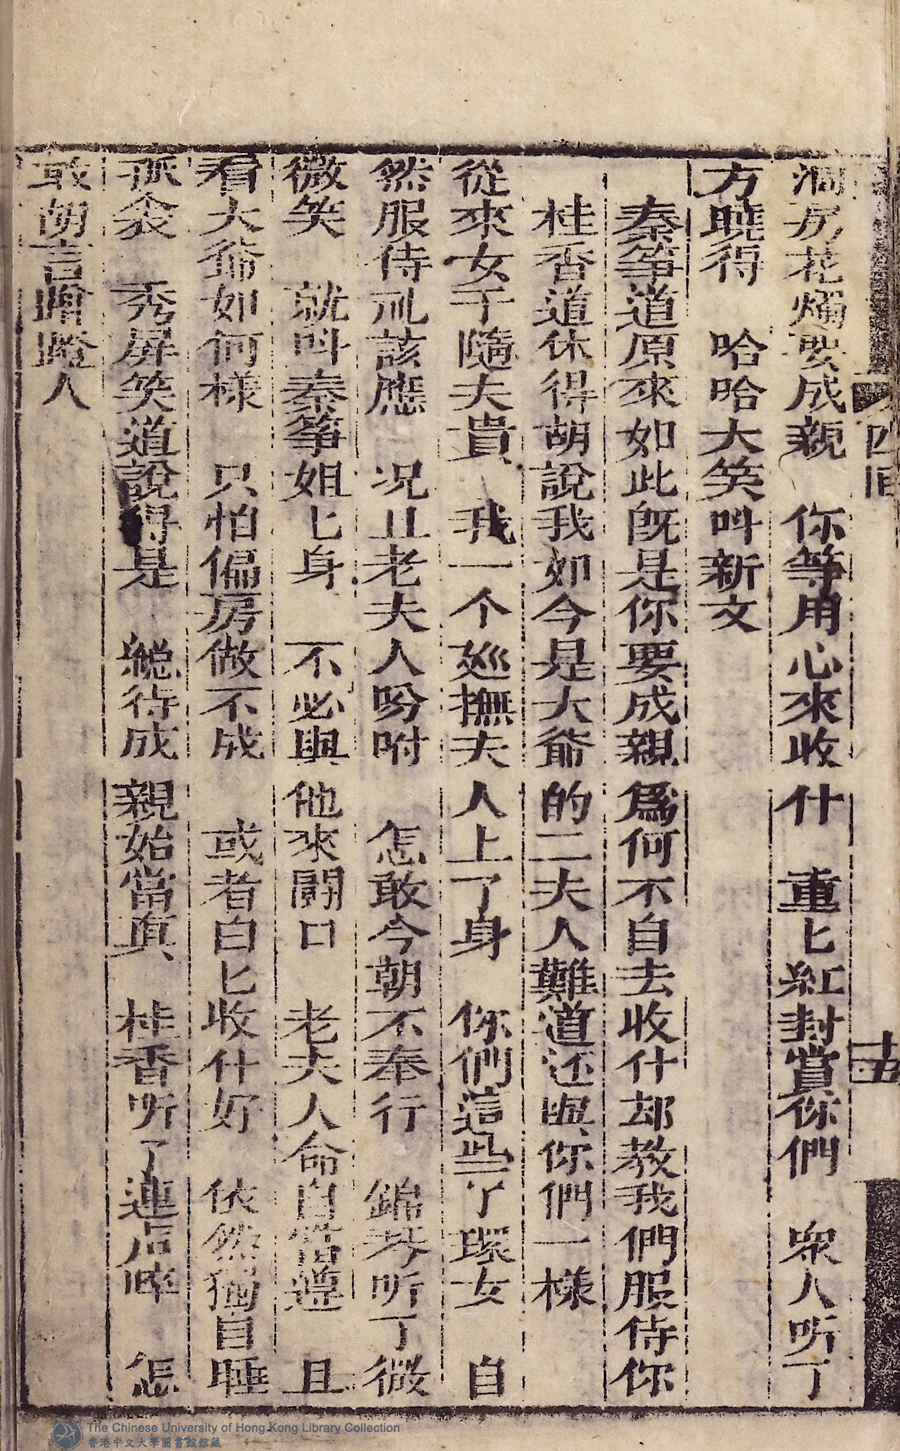 洞房花燭要成親　你等用心來收什　重匕紅封賞你們　衆人听了
方曉得　哈哈大笑叫新文
秦箏道原來如此旣是你要成親爲何不自去收什却教我們服侍你
桂香道休得胡說我如今是大爺的二夫人難道还與你們一樣
從來女子隨夫貴　我一个廵撫夫人上了身　你們這些了環女　自
然服侍礼該應　况且老夫人吩咐　怎敢今朝不奉行　錦琴听了微
微笑　就叫秦箏姐匕身　不必與他來鬪口　老夫人命自當遵　且
看大爺如何樣　只怕偏房做不成　或者白匕收什好　依然獨自睡
孤衾　秀屏笑道說得是　總待成親始當真　桂香听了連声啐　怎
敢胡言蹭蹬人
四回
十五
The Chinese University of Hong Kong Library Collection
香港中文大學圖書館館藏